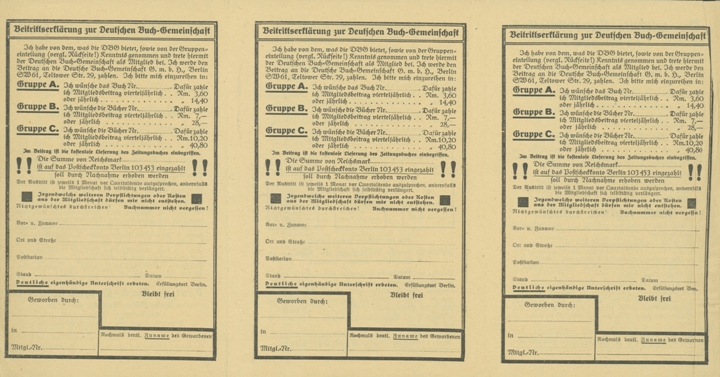 Beitrittserklärung zur Deutschen Buch-Gemeinschaft
Ich habe von dem, was die DBG bietet, sowie von der Gruppen-
einteilung (vergl. Rückseite!) Kenntnis genommen und trete hiermit
der Deutschen Buch-Gemeinschaft als Mitglied bei. Ich werde den
Beitrag an die Deutsche Buch-Gemeinschaft G. m. b. H., Berlin
SW61, Teltower Str. 29, zahlen. Ich bitte mich einzureihen in:
Gruppe A. Ich wünsche das Buch Nr. Dafür zahle
ich Mitgliedsbeitrag vierteljährlich Rm. 3,60
oder jährlich „ 14,40
Gruppe B. Ich wünsche die Bücher Nr. Dafür zahle
ich Mitgliedsbeitrag vierteljährlich Rm. 7,—
oder jährlich „ 28,—
Gruppe C. Ich wünsche die Bücher Nr. Dafür zahle
ich Mitgliedsbeitrag vierteljährlich Rm. 10,20
oder jährlich „ 40,80
Im Beitrag ist die kostenlose Lieferung der Zeitungsbücher einbegriffen.
!! Die Summe von Reichsmark !!
ist auf das Postscheckkonto Berlin 103453 eingezahlt
soll durch Nachnahme erhoben werden
Der Austritt ist jeweils 1 Monat vor Quartalsende anzuzeigen, andernfalls
die Mitgliedschaft sich selbständig verlängert.
Irgendwelche weiteren Verpflichtungen oder Kosten
aus der Mitgliedschaft dürfen mir nicht entstehen.
Nichtgewünschtes durchstreichen! Buchnummer nicht vergessen!
Vor- u. Zuname:
Ort und Straße
Poststation
Stand Datum
Deutliche eigenhändige Unterschrift erbeten. Erfüllungsort Berlin.
Geworben durch:
Bleibt frei
in
Mitgl.-Nr.
Nochmals deutl. Zuname des Geworbenen
Beitrittserklärung zur Deutschen Buch-Gemeinschaft
Ich habe von dem, was die DBG bietet, sowie von der Gruppen-
einteilung (vergl. Rückseite!) Kenntnis genommen und trete hiermit
der Deutschen Buch-Gemeinschaft als Mitglied bei. Ich werde den
Beitrag an die Deutsche Buch-Gemeinschaft G. m. b. H., Berlin
SW61, Teltower Str. 29, zahlen. Ich bitte mich einzureihen in:
Gruppe A. Ich wünsche das Buch Nr. Dafür zahle
ich Mitgliedsbeitrag vierteljährlich Rm. 3,60
oder jährlich „ 14,40
Gruppe B. Ich wünsche die Bücher Nr. Dafür zahle
ich Mitgliedsbeitrag vierteljährlich Rm. 7,—
oder jährlich „ 28,—
Gruppe C. Ich wünsche die Bücher Nr. Dafür zahle
ich Mitgliedsbeitrag vierteljährlich Rm. 10,20
oder jährlich „ 40,80
Im Beitrag ist die kostenlose Lieferung der Zeitungsbücher einbegriffen.
!! Die Summe von Reichsmark !!
ist auf das Postscheckkonto Berlin 103453 eingezahlt
soll durch Nachnahme erhoben werden
Der Austritt ist jeweils 1 Monat vor Quartalsende anzuzeigen, andernfalls
die Mitgliedschaft sich selbständig verlängert.
Irgendwelche weiteren Verpflichtungen oder Kosten
aus der Mitgliedschaft dürfen mir nicht entstehen.
Nichtgewünschtes durchstreichen! Buchnummer nicht vergessen!
Vor- u. Zuname:
Ort und Straße
Poststation
Stand Datum
Deutliche eigenhändige Unterschrift erbeten. Erfüllungsort Berlin.
Geworben durch:
Bleibt frei
in
Mitgl.-Nr.
Nochmals deutl. Zuname des Geworbenen
Beitrittserklärung zur Deutschen Buch-Gemeinschaft
Ich habe von dem, was die DBG bietet, sowie von der Gruppen-
einteilung (vergl. Rückseite!) Kenntnis genommen und trete hiermit
der Deutschen Buch-Gemeinschaft als Mitglied bei. Ich werde den
Beitrag an die Deutsche Buch-Gemeinschaft G. m. b. H., Berlin
SW61, Teltower Str. 29, zahlen. Ich bitte mich einzureihen in:
Gruppe A. Ich wünsche das Buch Nr. Dafür zahle
ich Mitgliedsbeitrag vierteljährlich Rm. 3,60
oder jährlich „ 14,40
Gruppe B. Ich wünsche die Bücher Nr. Dafür zahle
ich Mitgliedsbeitrag vierteljährlich Rm. 7,—
oder jährlich „ 28,—
Gruppe C. Ich wünsche die Bücher Nr. Dafür zahle
ich Mitgliedsbeitrag vierteljährlich Rm. 10,20
oder jährlich „ 40,80
Im Beitrag ist die kostenlose Lieferung der Zeitungsbücher einbegriffen.
!! Die Summe von Reichsmark !!
ist auf das Postscheckkonto Berlin 103453 eingezahlt
soll durch Nachnahme erhoben werden
Der Austritt ist jeweils 1 Monat vor Quartalsende anzuzeigen, andernfalls
die Mitgliedschaft sich selbständig verlängert.
Irgendwelche weiteren Verpflichtungen oder Kosten
aus der Mitgliedschaft dürfen mir nicht entstehen.
Nichtgewünschtes durchstreichen! Buchnummer nicht vergessen!
Vor- u. Zuname:
Ort und Straße
Poststation
Stand Datum
Deutliche eigenhändige Unterschrift erbeten. Erfüllungsort Berlin.
Geworben durch:
Bleibt frei
in
Mitgl.-Nr.
Nochmals deutl. Zuname des Geworbenen